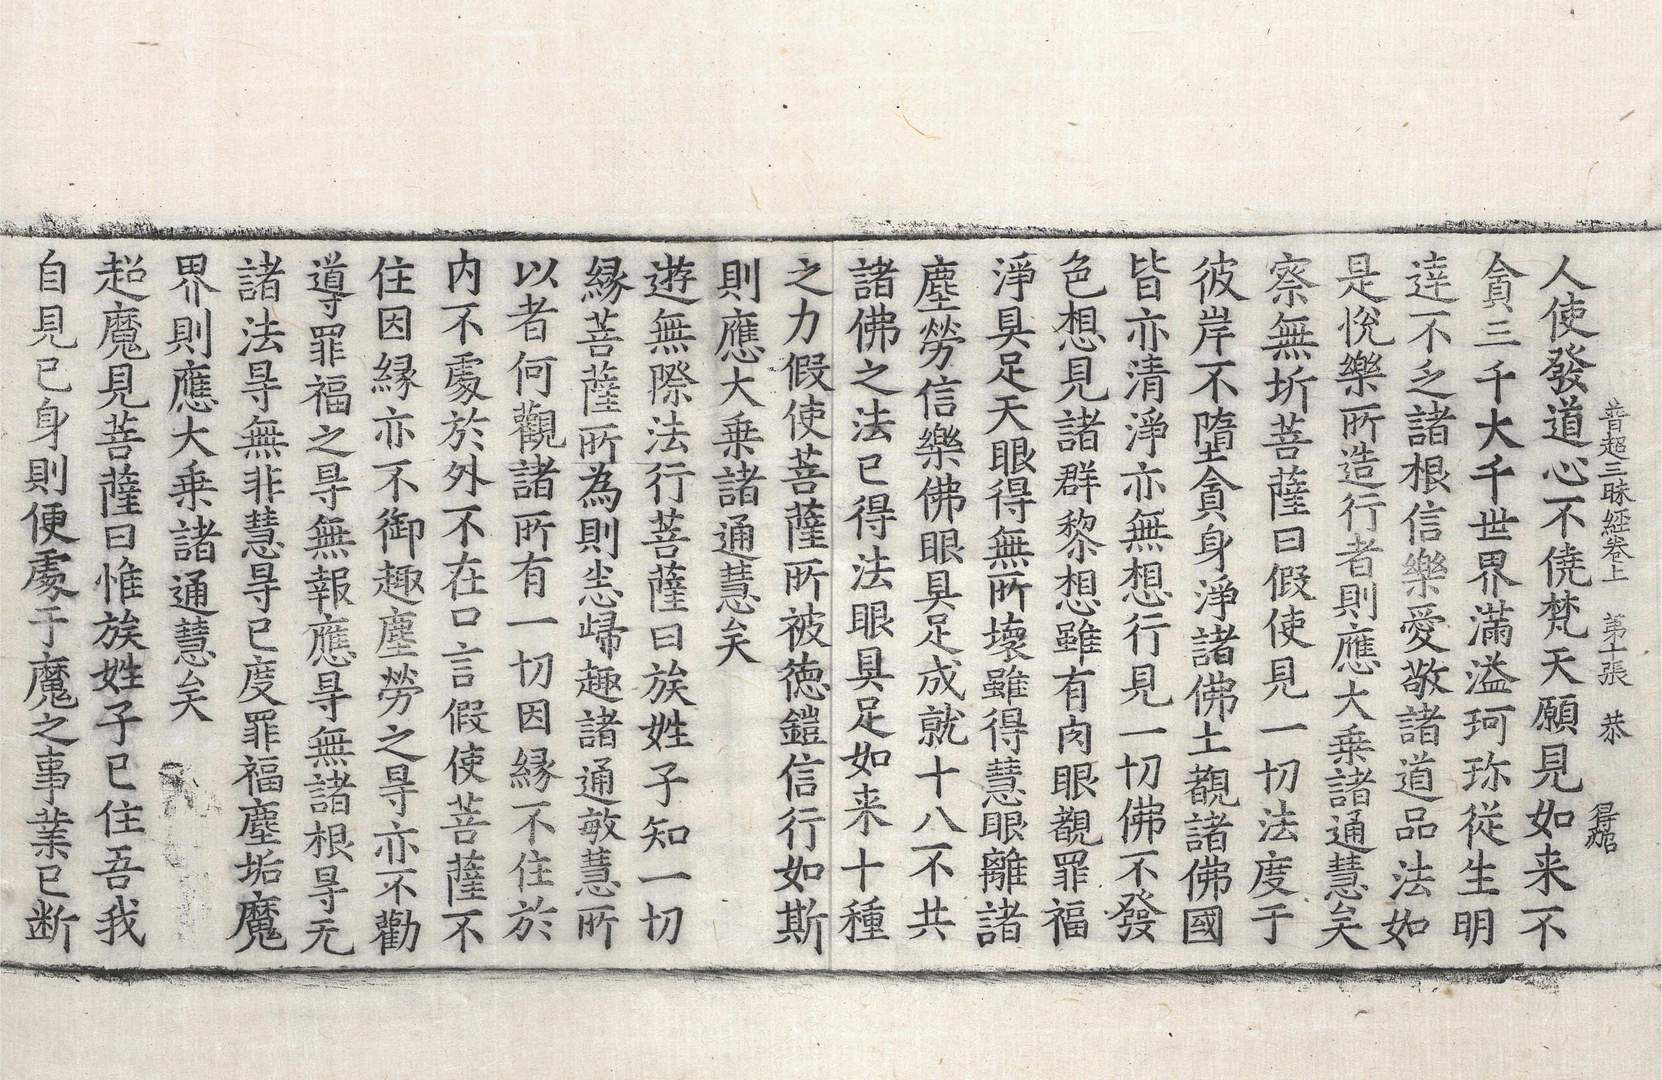 普超三昧經卷上　第十張　恭　得㕠
人使發道心不僥梵天願見如来不
貪三千大千世界滿溢珂珎從生明
逹不乏諸根信樂愛敬諸道品法如
是悅樂所造行者則應大乗諸通慧矣
察無圻菩薩曰假使見一切法度于
彼岸不墮貪身淨諸佛土覩諸佛國
皆亦清淨亦無想行見一切佛不發
色想見諸群黎想雖有肉眼覩罪福
淨具足天眼得無所壞雖得慧眼離諸
塵勞信樂佛眼具足成就十八不共
諸佛之法已得法眼具足如来十種
之力假使菩薩所被徳鎧信行如斯
則應大乗諸通慧矣
遊無際法行菩薩曰族姓子知一切
縁菩薩所為則恙歸趣諸通敏慧所
以者何觀諸所有一切因縁不住於
内不處於外不在口言假使菩薩不
住因縁亦不御趣塵勞之㝵亦不勸
導罪福之㝵無報應㝵無諸根㝵无
諸法㝵無非慧㝵已度罪福塵垢魔
界則應大乗諸通慧矣
超魔見菩薩曰惟族姓子已住吾我
自見已身則便處于魔之事業已断